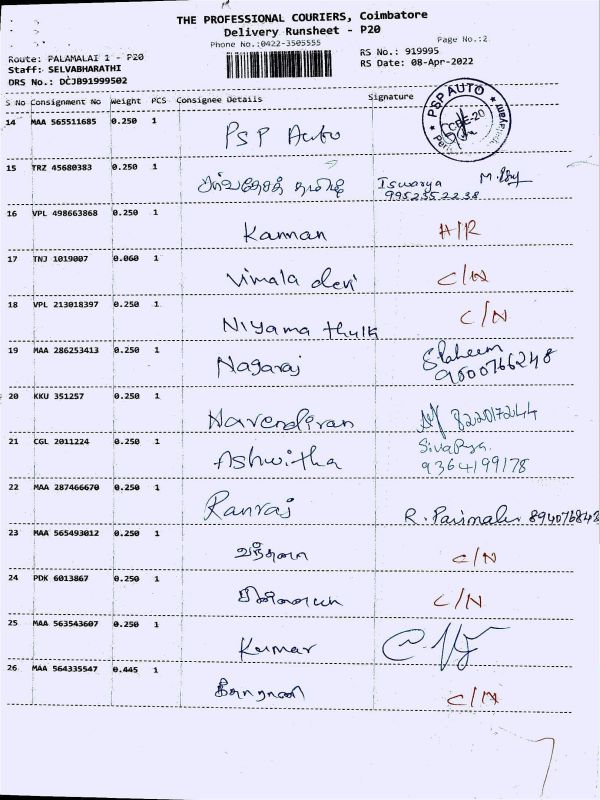 THE PROFESSIONAL COURIERS, Coimbatore
Delivery Runsheet - P20
Phone No.:0422-3505555
Page No.:2
Route: PALAMALAI 1 - P20
RS No.: 919995
Staff: SELVABHARATHI
RS Date: 08-Apr-2022
DRS No.: DCJB91999502
S No Consignment No Weight PCS Consignee Details Signature
14 MAA 565511685 0.250 1 PSP Auto
PSP AUTO
CBE-20
15 TRZ 45680383 0.250 1 Iswarya
9952552238
16 VPL 498663868 0.250 1 Kannan A/R
17 TNJ 1019007 0.060 1 Vimala devi C/N
18 VPL 213018397 0.250 1 Niyama thulla C/N
19 MAA 286253413 0.250 1 Nagaraj
9600766248
20 KKU 351257 0.250 1 Narendiran 8220172044
21 CGL 2011224 0.250 1 Ashwitha SivaPrya.
9364199178
22 MAA 287466670 0.250 1 Ranraj R. Parimala 8940768428
23 MAA 565493012 0.250 1 வந்தனா C/N
24 PDK 6013867 0.250 1 C/N
25 MAA 563543607 0.250 1 Kumar
26 MAA 564335547 0.445 1 C/N